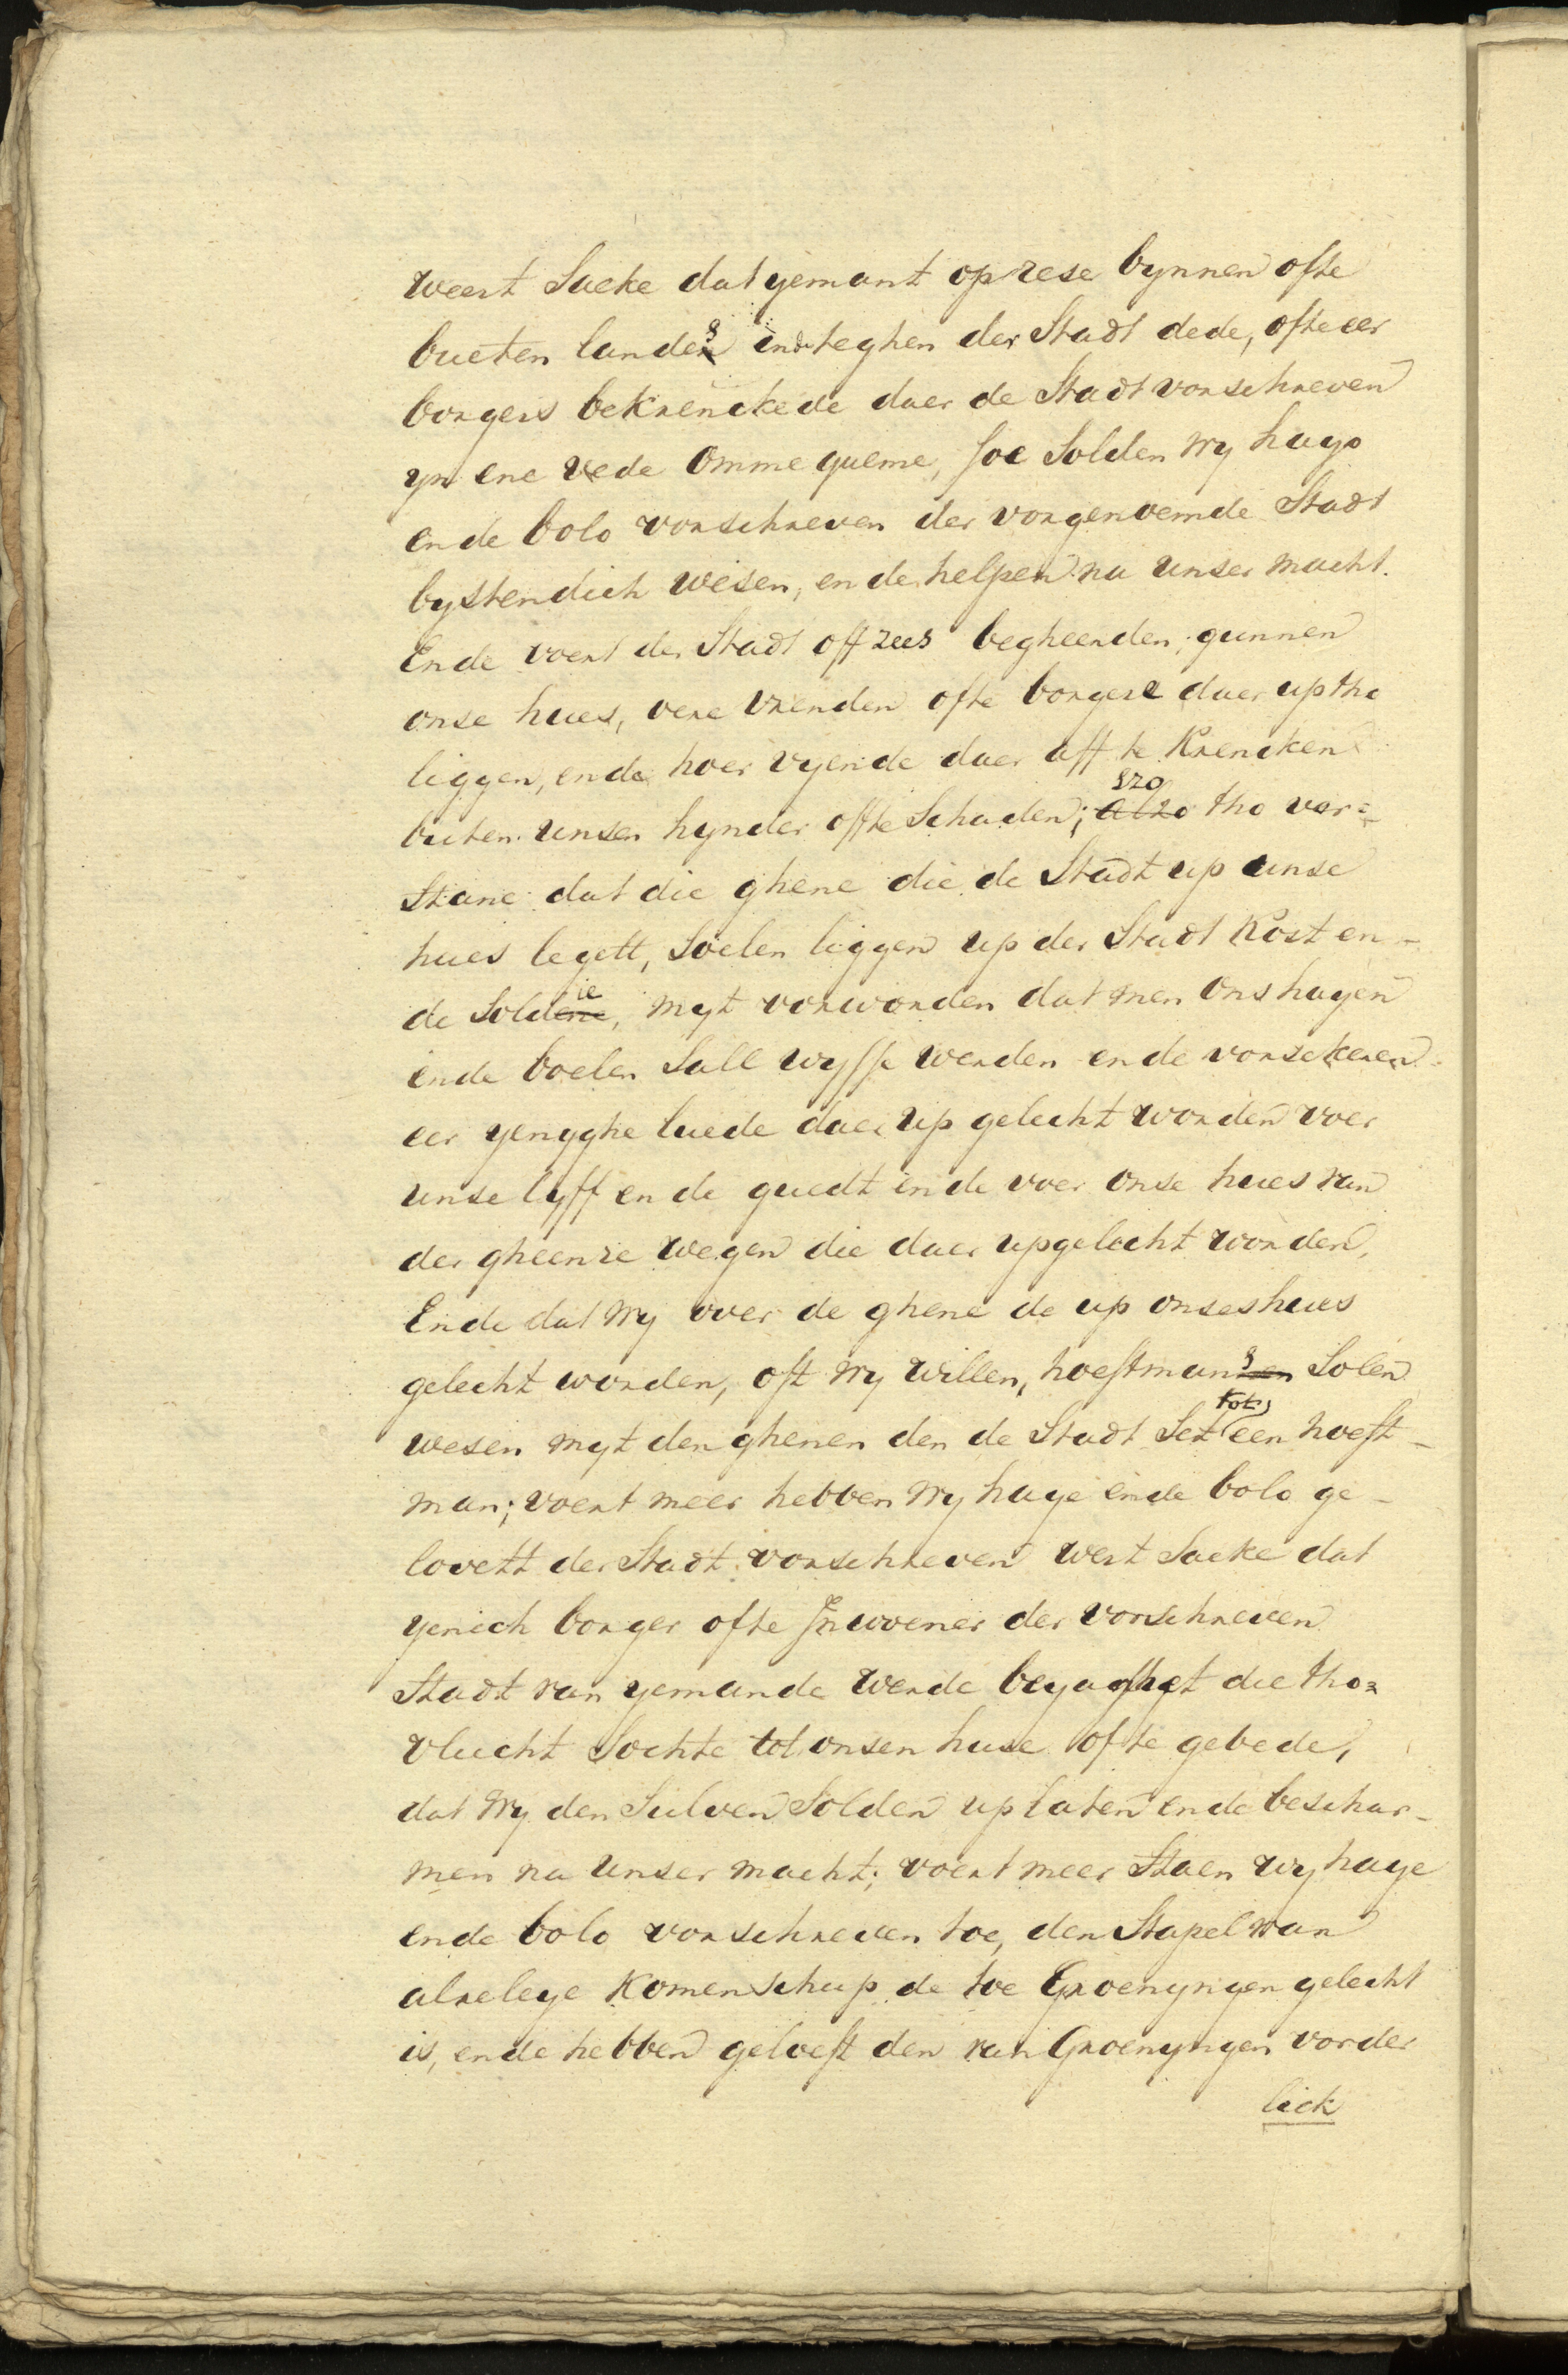 weert Sacke dat yemant op rese bynnen ofte
bueten landes ende teghen der Stadt dede, ofte eer
borgers beKrenckede daer de Stadt vorschreven
yn ene vede omme queme, soe Solden wy hayo
ende bolo vorschreven der vorgenoemde Stadt
bystendich wesen, ende helpen na unser macht.
Ende voert der Stadt off zees begheerden, gunnen
onse hues, eere vrenden ofte borgere daer up tho
liggen, ende hoer vyende daer aff te Krencken
buten unsen hynder offte Schaden; szo tho ver=
Stane dat die ghene die de Stadt up unse
hues legett, Soelen liggen up der Stadt Kost en-
de Soldie, myt vorworden dat men ons hayen
ende boelen Sall wysse werden ende vorsekeren
eer yenyghe luede daer up gelecht worden voer
unse lyff ende guedt ende voer onse hues van
der gheenre wegen die daer upgelecht worden,
Ende dat wy over de ghene de up onses hues
gelecht worden, oft wy willen, hoeftmans Solen
wesen myt den ghenen den de Stadt Set tot een hoeft-
man; voert meer hebben wy haye ende bolo ge-
lovett der Stadt vorschreven wert Sacke dat
yenich borger ofte Jnwoener der vorschreven
Stadt van yemande werde beyaghet die tho=
vlucht Sochte tot onsen huse ofte gebede,
dat wy den Sulven Solden uplaten ende beschar-
men na unser macht; voert meer Staen wy haye
ende bolo vorschreven toe, den Stapel van
alreleye Komenschup de toe Groenyngen gelecht
is, ende hebben geloeft den van Groenyngen vorder
lick